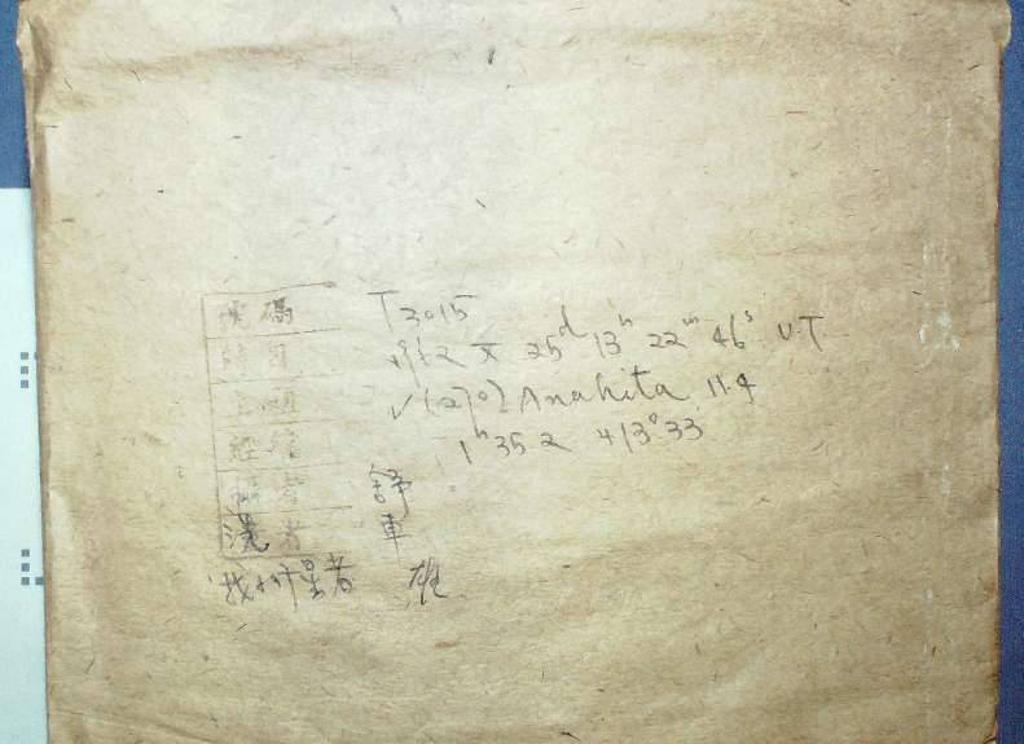 號碼 T3015
時間 1962 X 25ᵈ 13ʰ 22ᵐ 46ˢ U.T
✓ (270) Anahita 11.4
1ʰ 35 2 +13°33
者 舒
洗者 車
找小行星者 雄